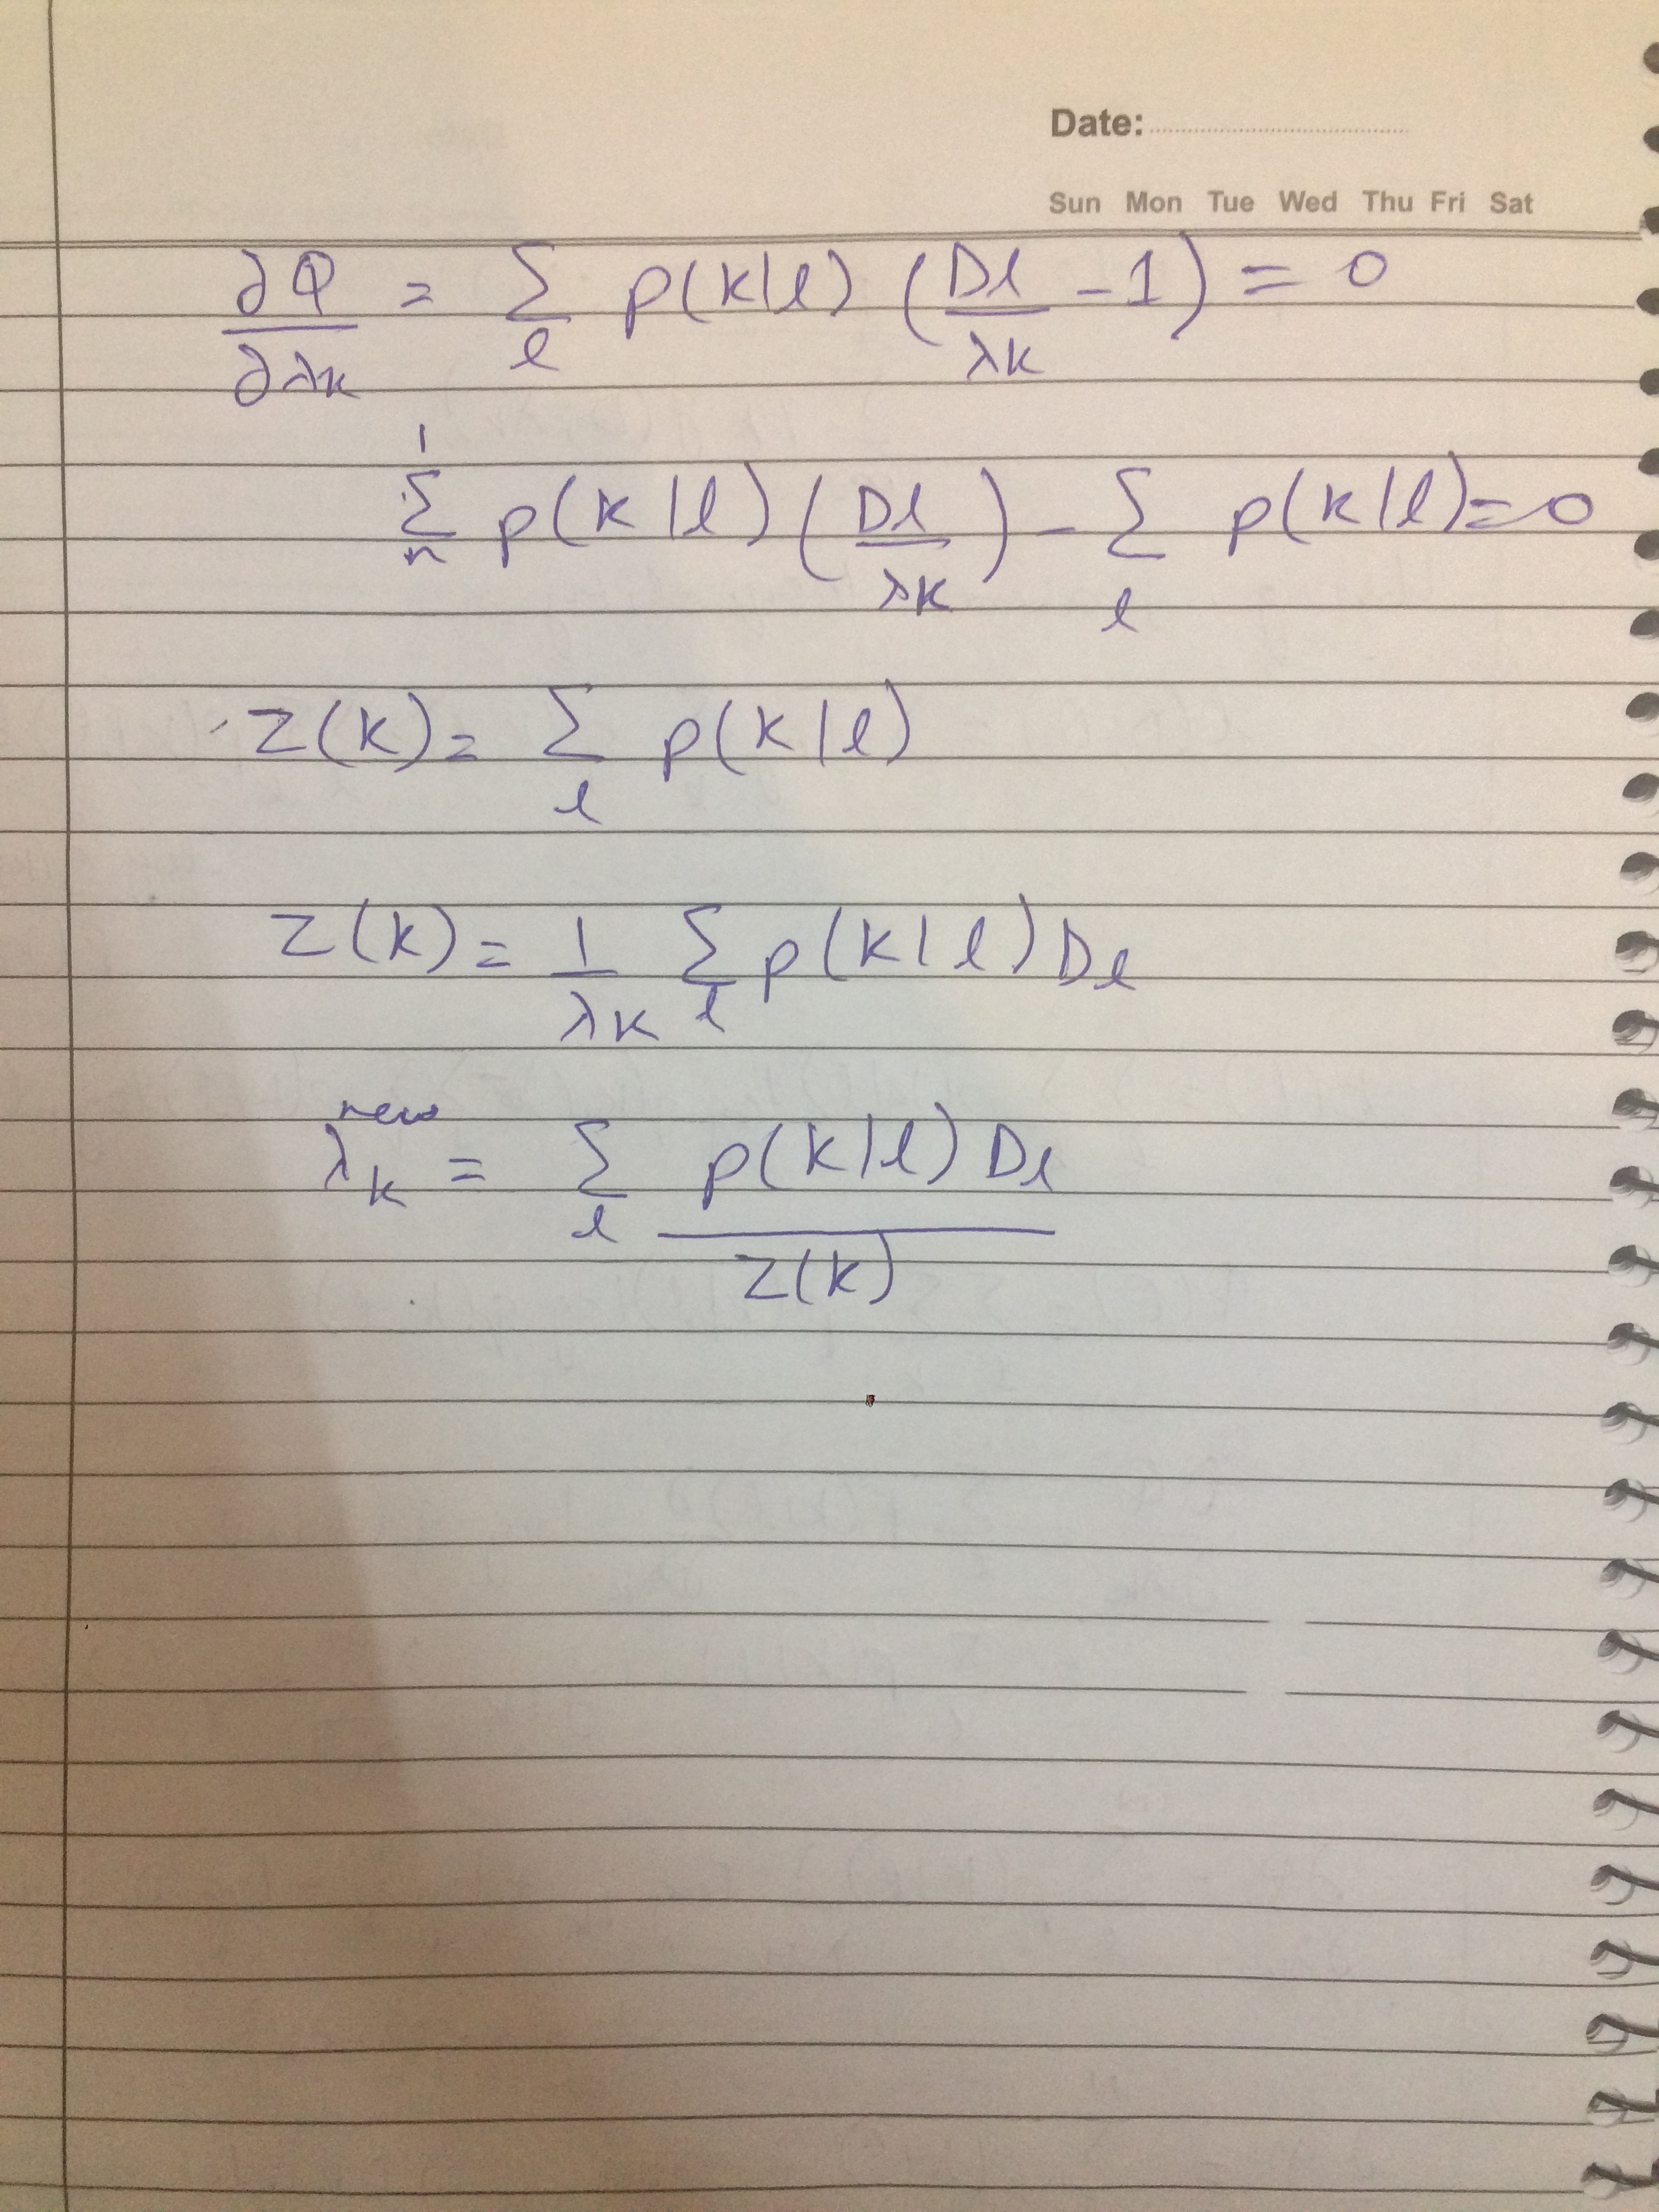 Date:
Sun Mon Tue Wed Thu Fri Sat
∂Q/∂λk = Σ_l p(k|l) (Dl/λk - 1) = 0
Σ_n^1 p(k|l) (Dl/λk) - Σ_l p(k|l) = 0
Z(k) = Σ_l p(k|l)
Z(k) = 1/λk Σ_l p(k|l) Dl
λ_k^new = Σ_l p(k|l) Dl / Z(k)